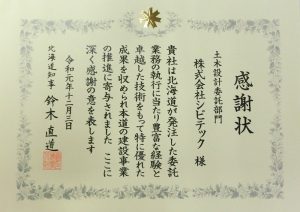 感謝状
土木設計委託部門
株式会社シビテック 様
貴社は北海道が発注した委託
業務の執行に当たり豊富な経験と
卓越した技術をもって特に優れた
成果を収められ本道の建設事業
の推進に寄与されました ここに
深く感謝の意を表します
令和元年十二月三日
北海道知事 鈴木直道